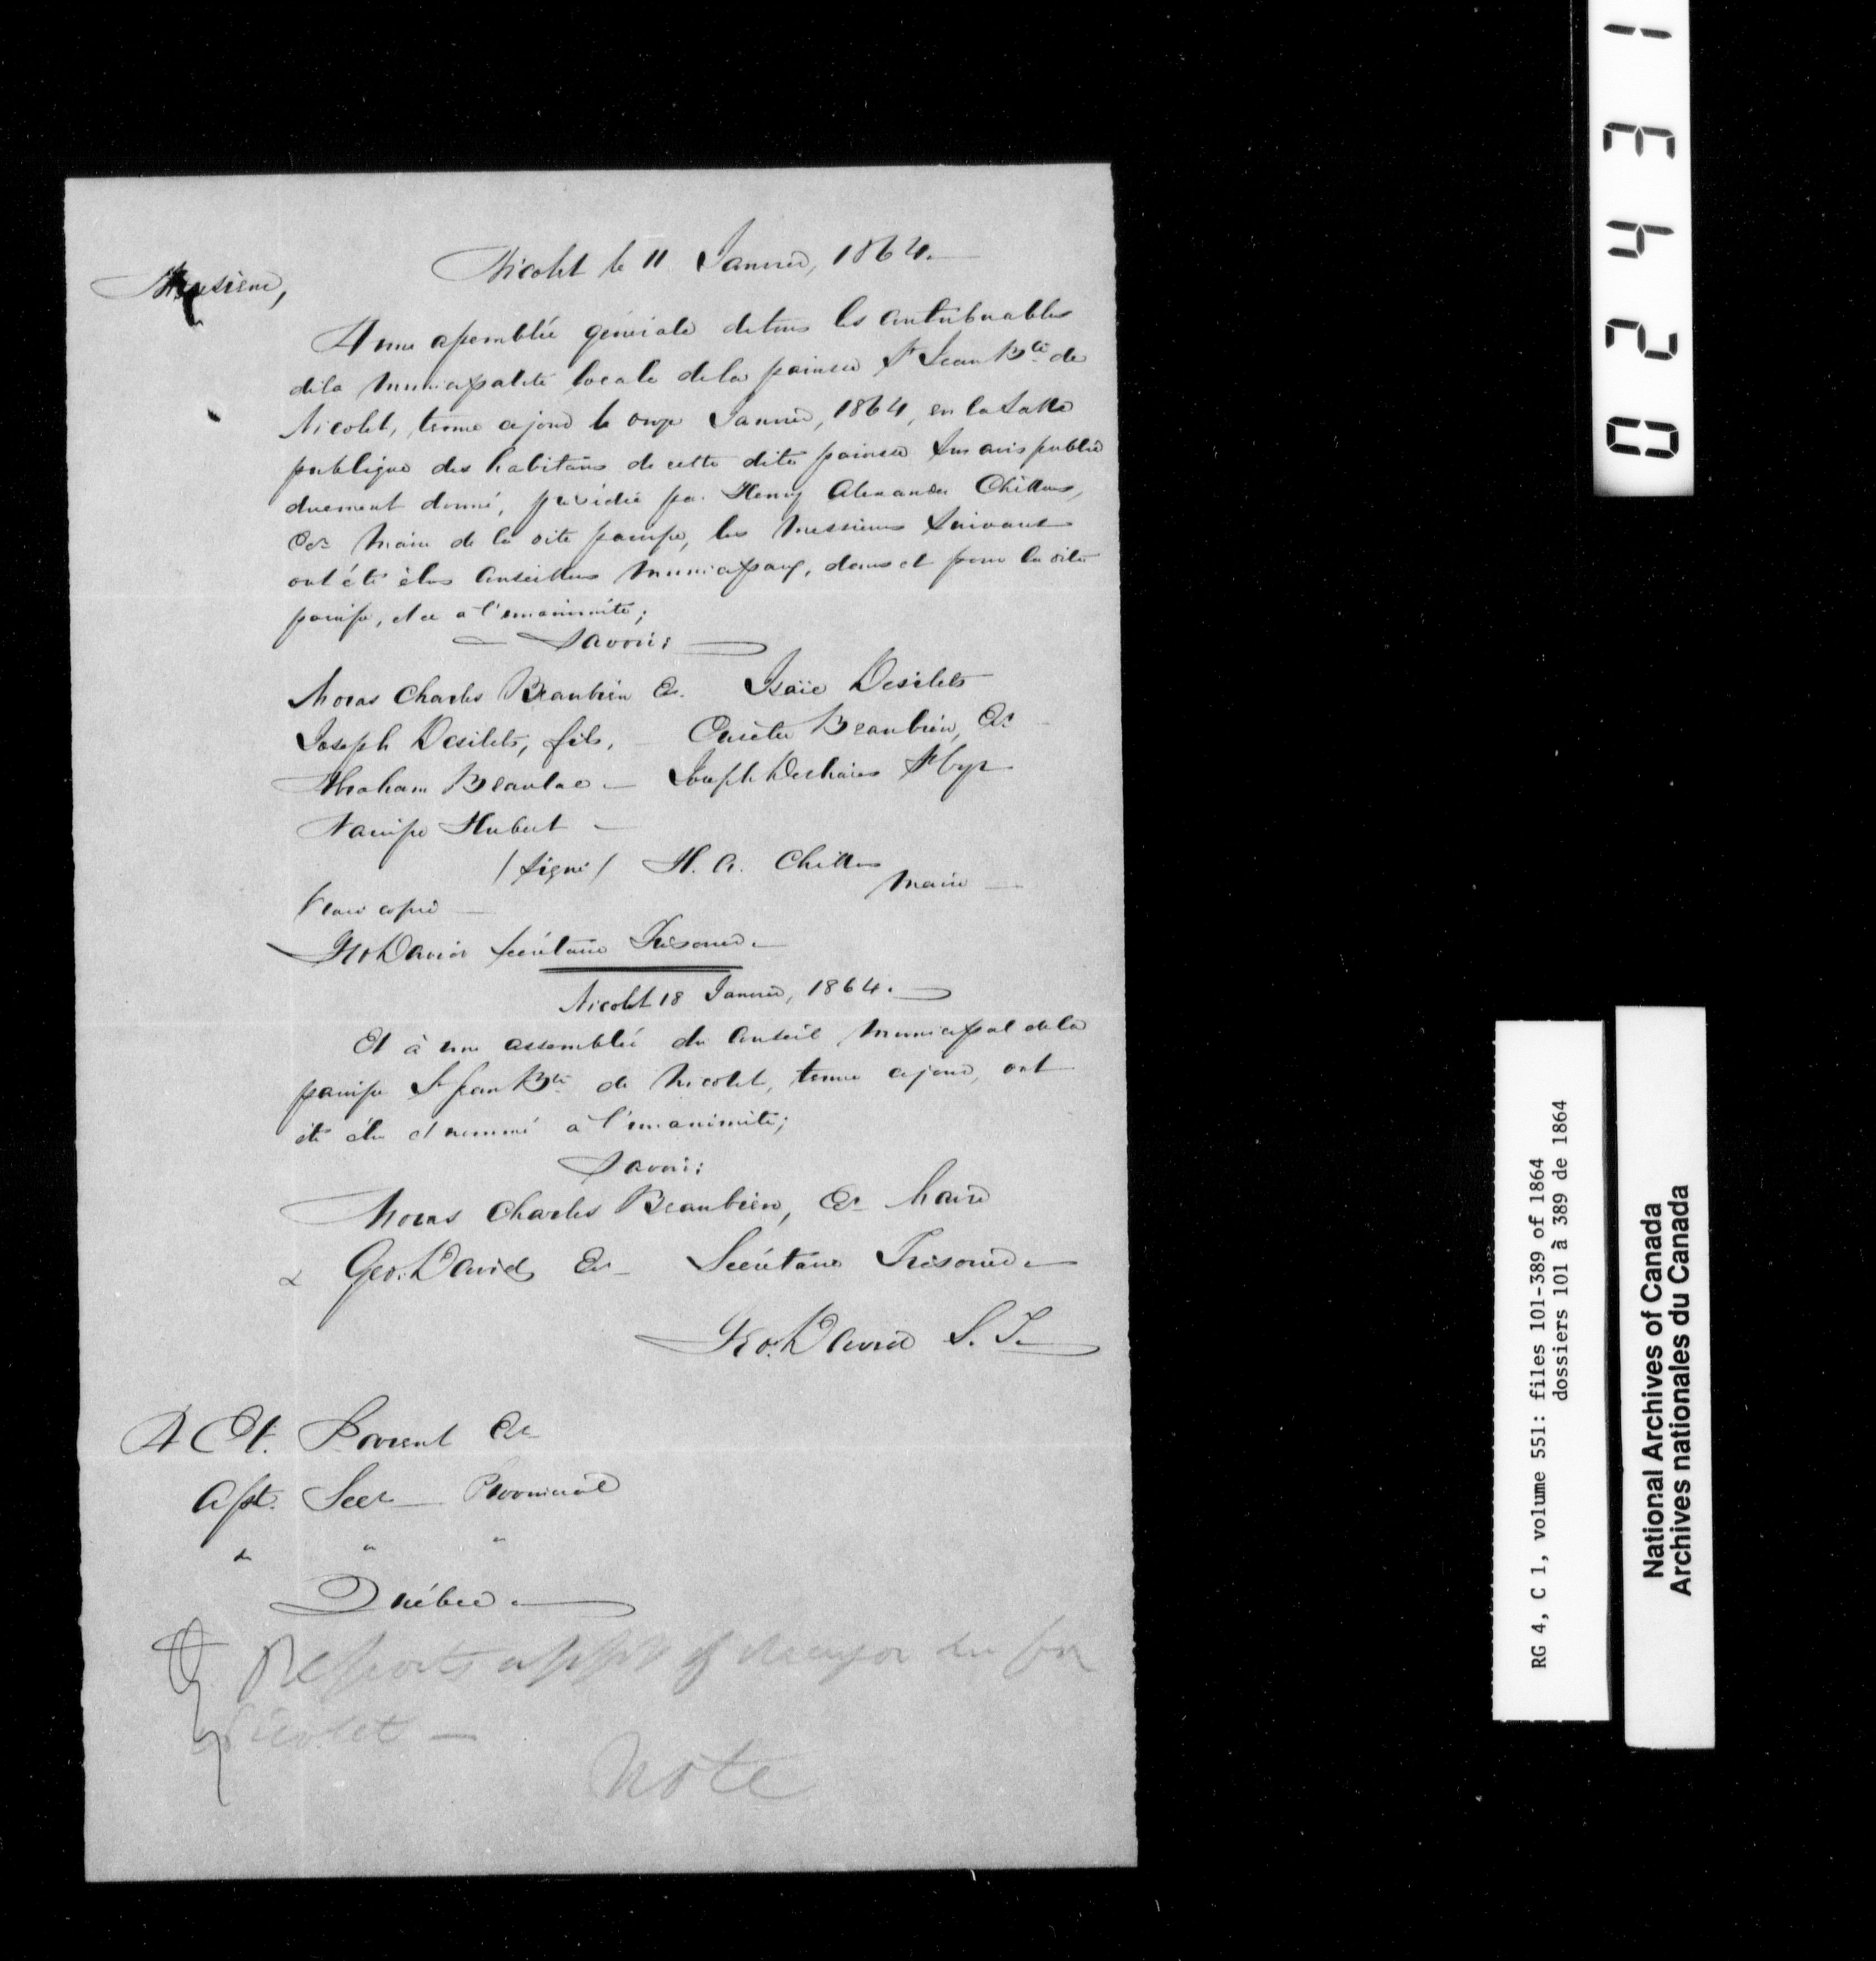 Nicolet le 11 Janvier, 1864.
Monsieur,
A une assemblée générale de tous les contribuables
de la Municipalité locale de la paroisse St Jean Bte de
Nicolet, tenue ce jour le onze Janvier, 1864, en la Salle
publique des habitans de cette dite paroisse sur avis public
duement donné, présidée par Henry Alexander Chillas,
Ecr Maire de la dite paroisse, les Messieurs suivants
ont été élus Conseillers Municipaux, dans et pour la dite
paroisse, et ce a l'unanimité;
Savoir:
Moras Charles Beaubien Ec. Isaïe Desilets
Joseph Desilets, fils, Beaubien, Ecr
Abraham Beaulac Joseph Deshaies St Cyr
Hubert
/ Signé / H. A. Chillas
Maire
Vraie copie
Geo David Secrétaire Trésorier
Nicolet 18 Janvier, 1864.
Et à une assemblée du Conseil Municipal de la
paroisse St Jean Bte de Nicolet, tenue ce jour, ont
été élu et nommé à l'unanimité;
Savoir:
Moras Charles Beaubien, Ecr Maire
& Geo. David Ecr Secrétaire Trésorier
Geo. David S. T.
A Et. Parent Ecr
Asst. Secr Provincial
" " "
Québec
Reports appt of Mayor &c for
Nicolet —
Note
0 2 4 3 1
RG 4, C 1, volume 551: files 101-389 of 1864
dossiers 101 à 389 de 1864
National Archives of Canada
Archives nationales du Canada